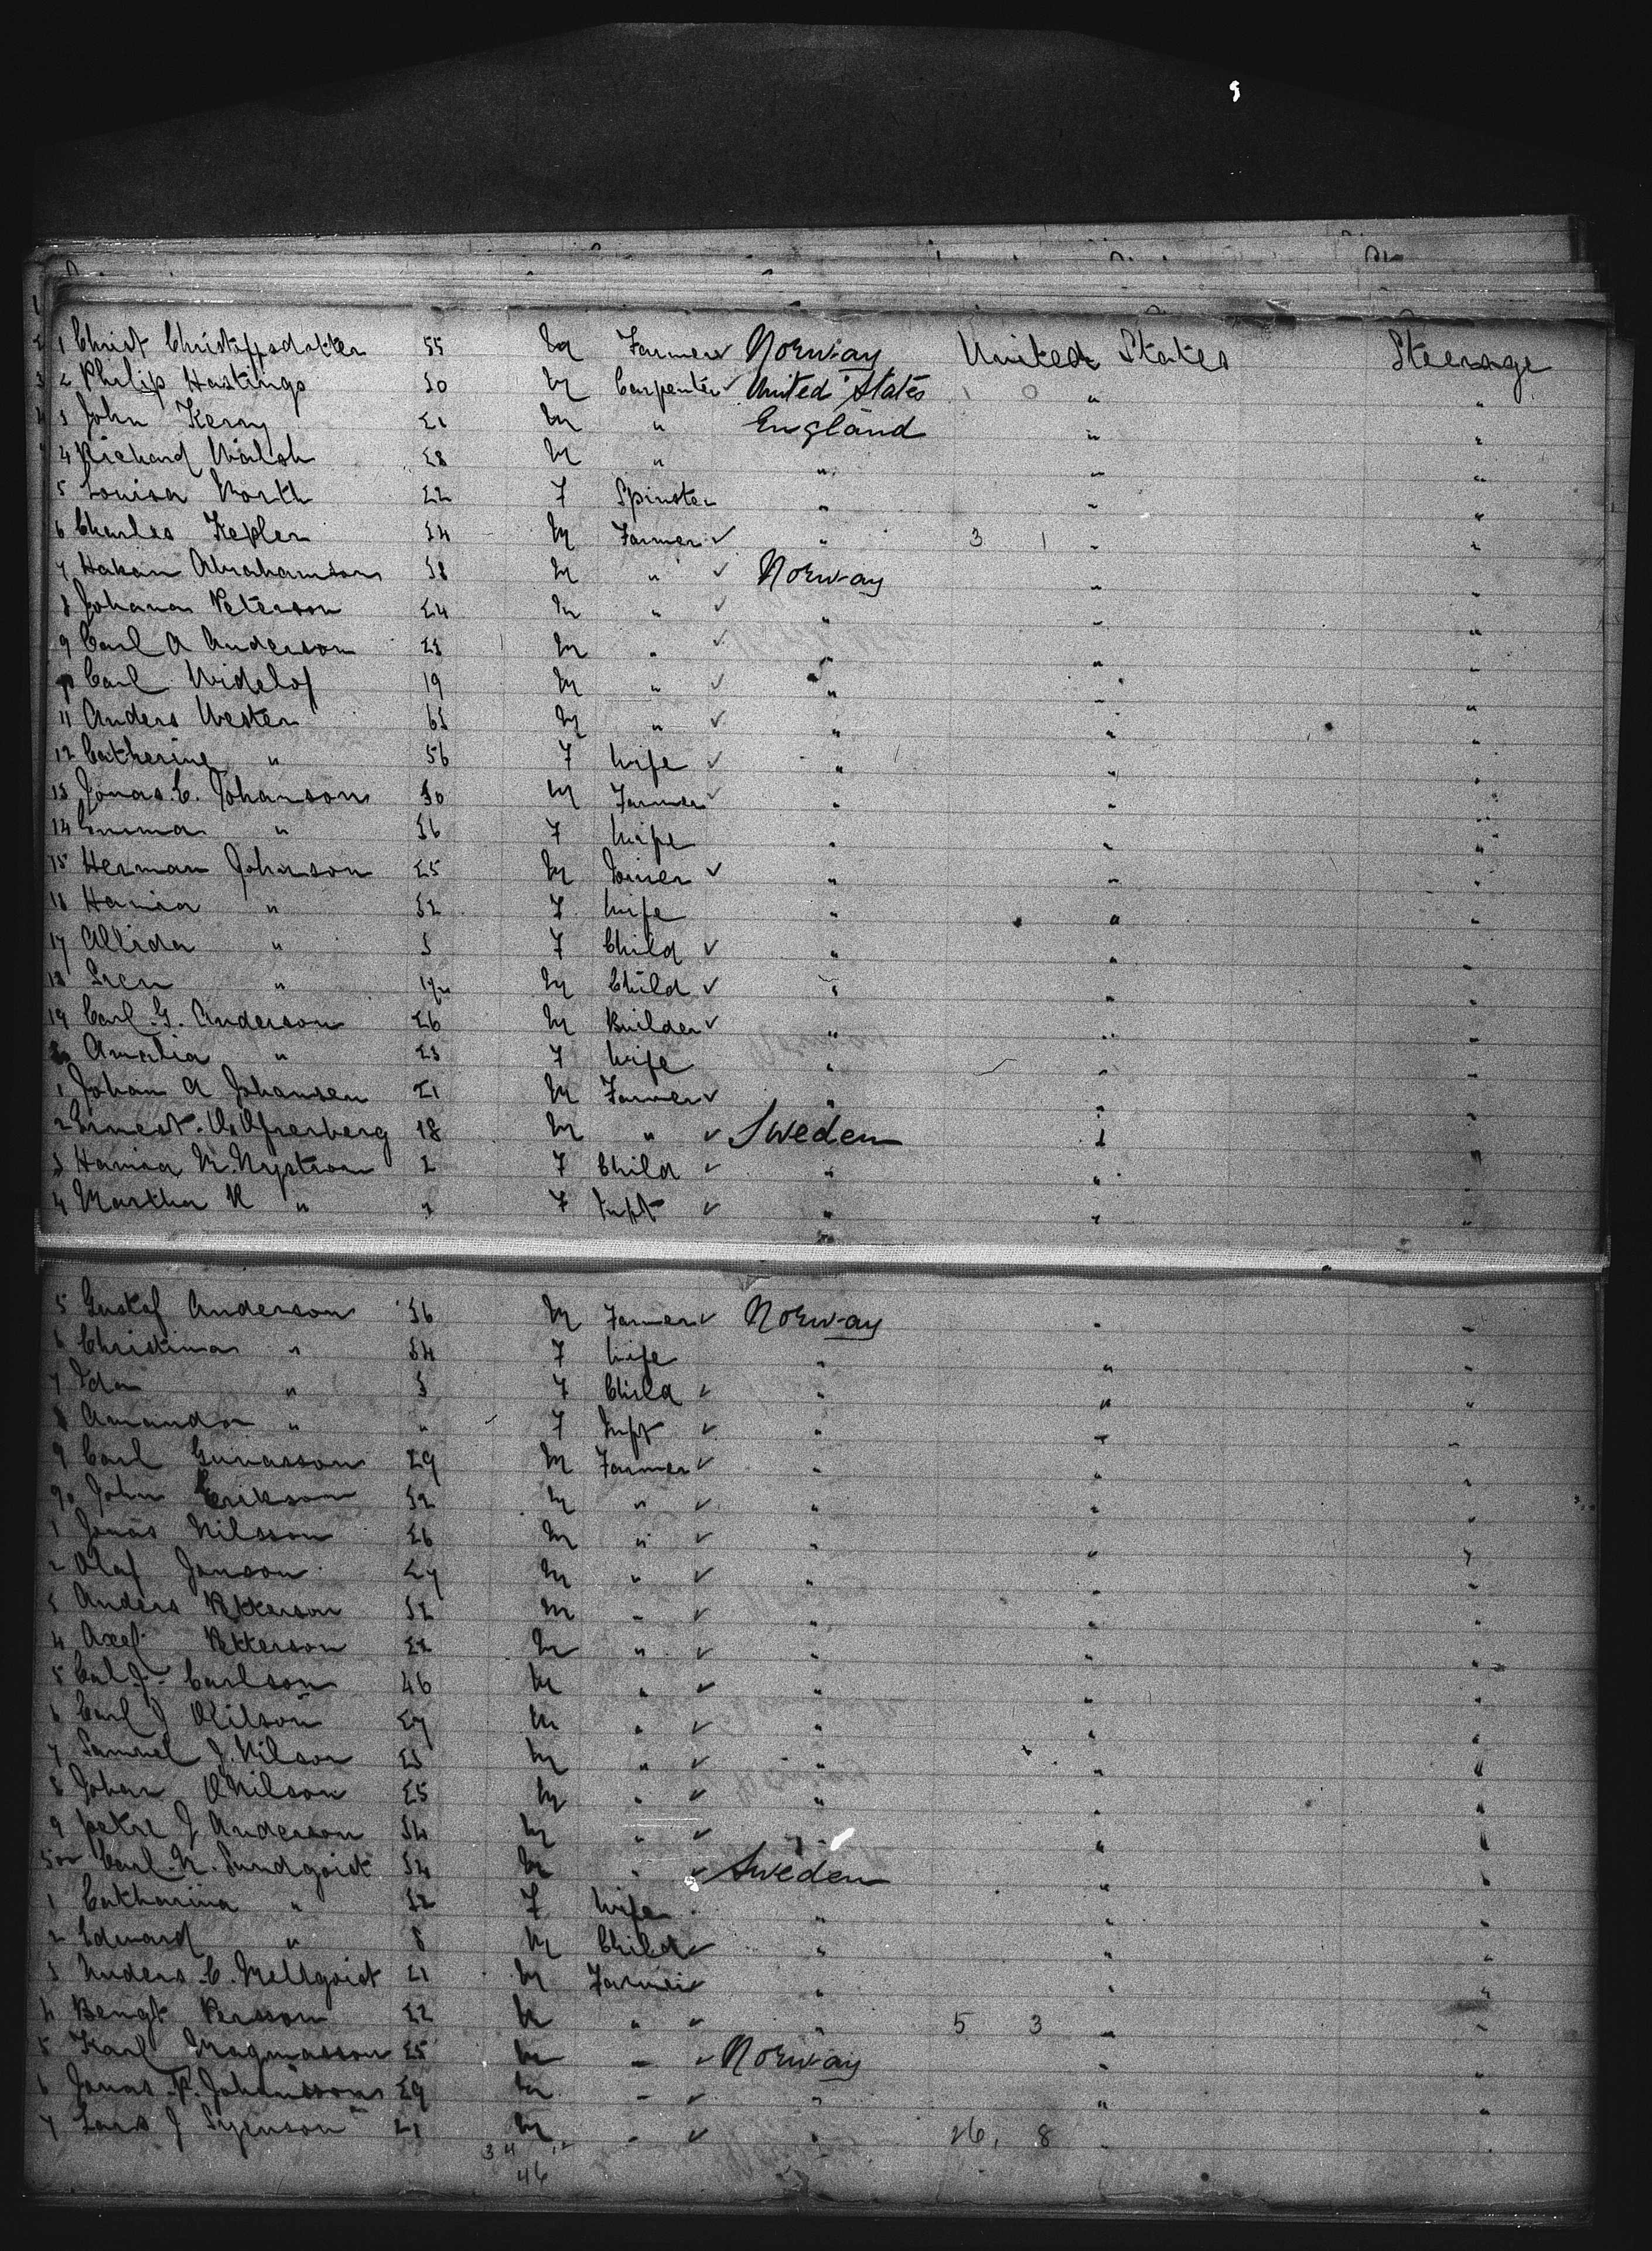 1 Christ Christoffsdotter 55 M Farmer Norway United States Steerage
2 Philip Hastings 30 M Carpenter United States 1 0 " "
3 John Kerry 21 M " England " "
4 Richard Walsh 28 M " " " "
5 Louisa North 22 F Spinster " " "
6 Charles Kepler 34 M Farmer " 3 1 " "
7 Hakan Abrahamson 38 M " Norway " "
8 Johanas Peterson 24 M " " " "
9 Carl A Anderson 23 M " " " "
Carl Widelof 19 M " " " "
11 Anders Wester 63 M " " " "
12 Catherine " 56 F Wife " " "
13 Jonas C. Johanson 30 M Farmer " " "
14 Emma " 36 F Wife " " "
15 Herman Johnson 25 M Joiner " " "
16 " 32 F Wife " " "
17 Allida " 3 F Child " " "
18 " M Child " " "
19 Carl G. Anderson 26 M Builder " " "
Amalia " 23 F Wife " " "
1 Johan A Johansen 21 M Farmer " " "
2 Ernest 18 M " Sweden " "
3 Hanna M. Nystrom 2 F Child " " "
4 Martha K " " F Inft " " "
5 Gustaf Anderson 36 M Farmer Norway " "
6 Christina " 34 F Wife " " "
7 Ida " 3 F Child " " "
8 Amanda " " F Inft " " "
9 Carl Gunasson 29 M Farmer " " "
90 John Erikson 32 M " " " "
1 Jonas Nilsson 26 M " " " "
2 Olaf Jonson 27 M " " " "
3 Anders Petterson 32 M " " " "
4 Axel Petterson 22 M " " " "
5 Carl J. Carlson 46 M " " " "
6 Carl J 27 M " " " "
7 Samuel J. Nilson 23 M " " " "
8 Johan O Nilson 25 M " " " "
9 J Anderson 34 M " " " "
500 Carl N. Sundqvist 34 M " Sweden " "
1 Catharina " 32 F Wife " " "
2 Edward " 8 M Child " " "
3 Anders C. Mellqvist 21 M Farmer " " "
4 Bengt Persson 22 M " " 5 3 " "
5 Karl Magnasson 25 M " Norway " "
6 Jonas P. Johansson 29 M " " " "
7 Lars J Svenson 21 M " " 26, 8 " "
34 12
46